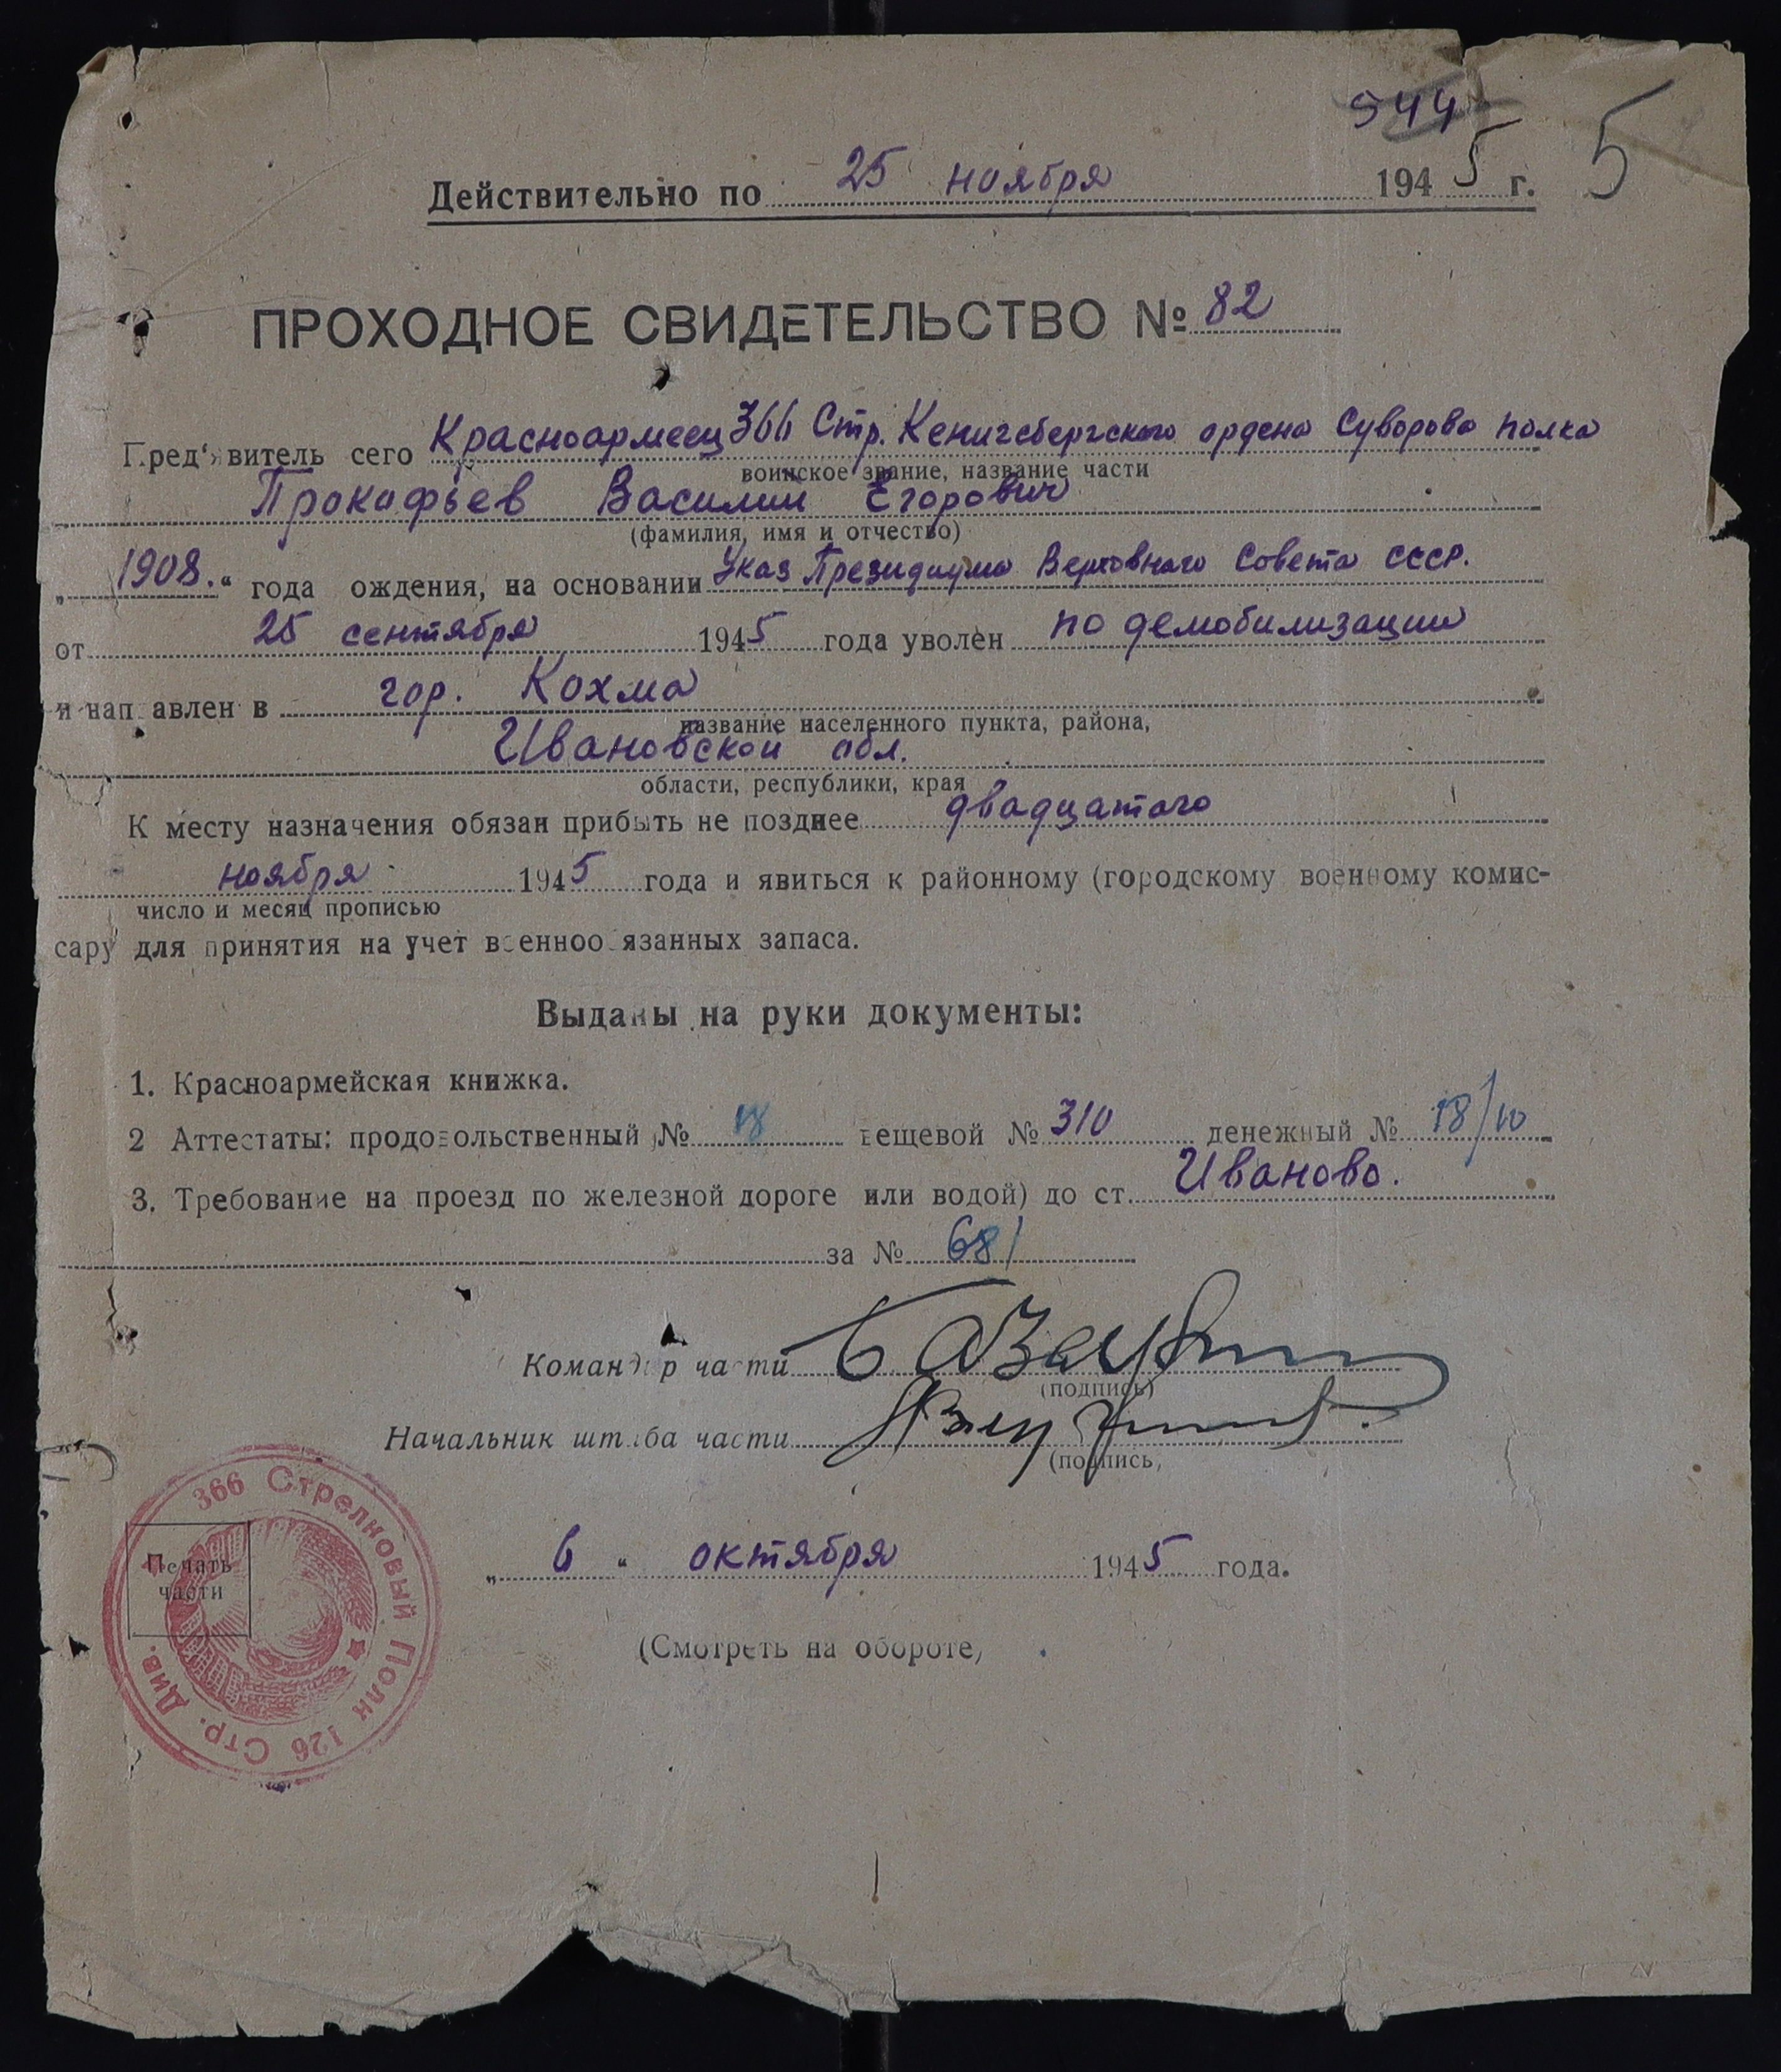 544
5
Действительно по 25 ноября 1945 г.
ПРОХОДНОЕ СВИДЕТЕЛЬСТВО № 82
Пред'явитель сего Красноармеец 366 Стр. Кенигсбергского ордена Суворова полка
воинское звание, название части
Прокофьев Василий Егорович
(фамилия, имя и отчество)
„1908.“ года ождения, на основании Указ Президиума Верховного Совета СССР.
от 25 сентября 1945 года уволен по демобилизации
и нап авлен в гор. Кохма
название населенного пункта, района,
Ивановской обл.
области, республики, края
К месту назначения обязан прибыть не позднее двадцатого
ноября 1945 года и явиться к районному (городскому военному комис-
число и месяц прописью
сару для принятия на учет военнооб язанных запаса.
Выданы на руки документы:
1. Красноармейская книжка.
2 Аттестаты: продовольственный № 18 вещевой № 310 денежный № 18/10
3. Требование на проезд по железной дороге или водой) до ст. Иваново.
за № 681
Командир части
(подпись)
Начальник штаба части
(подпись,
„ 6 “ октября 1945 года.
Печать
части
366 Стрелковый Полк 126 Стр. Див.
(Смотреть на обороте,